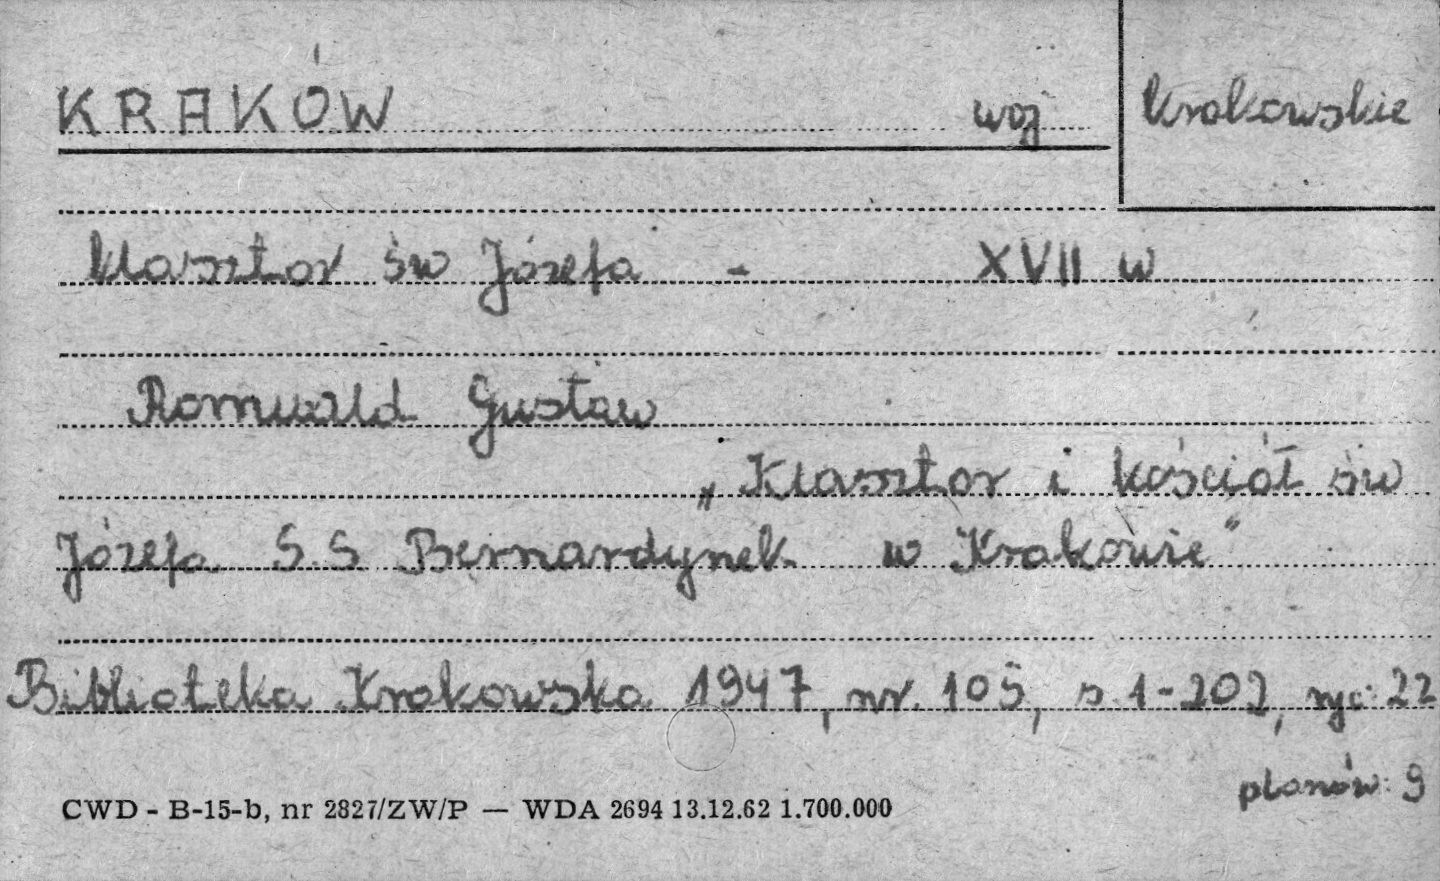 KRAKÓW woj krakowskie
klasztor św Józefa - XVII w
Romuald Gustaw
„Klasztor i kościół św
Józefa S.S Bernardynek w Krakowie"
Biblioteka Krakowska 1947, nr. 105, s. 1-202, ryc: 22
planów: 9
CWD - B-15-b, nr 2827/ZW/P — WDA 2694 13.12.62 1.700.000